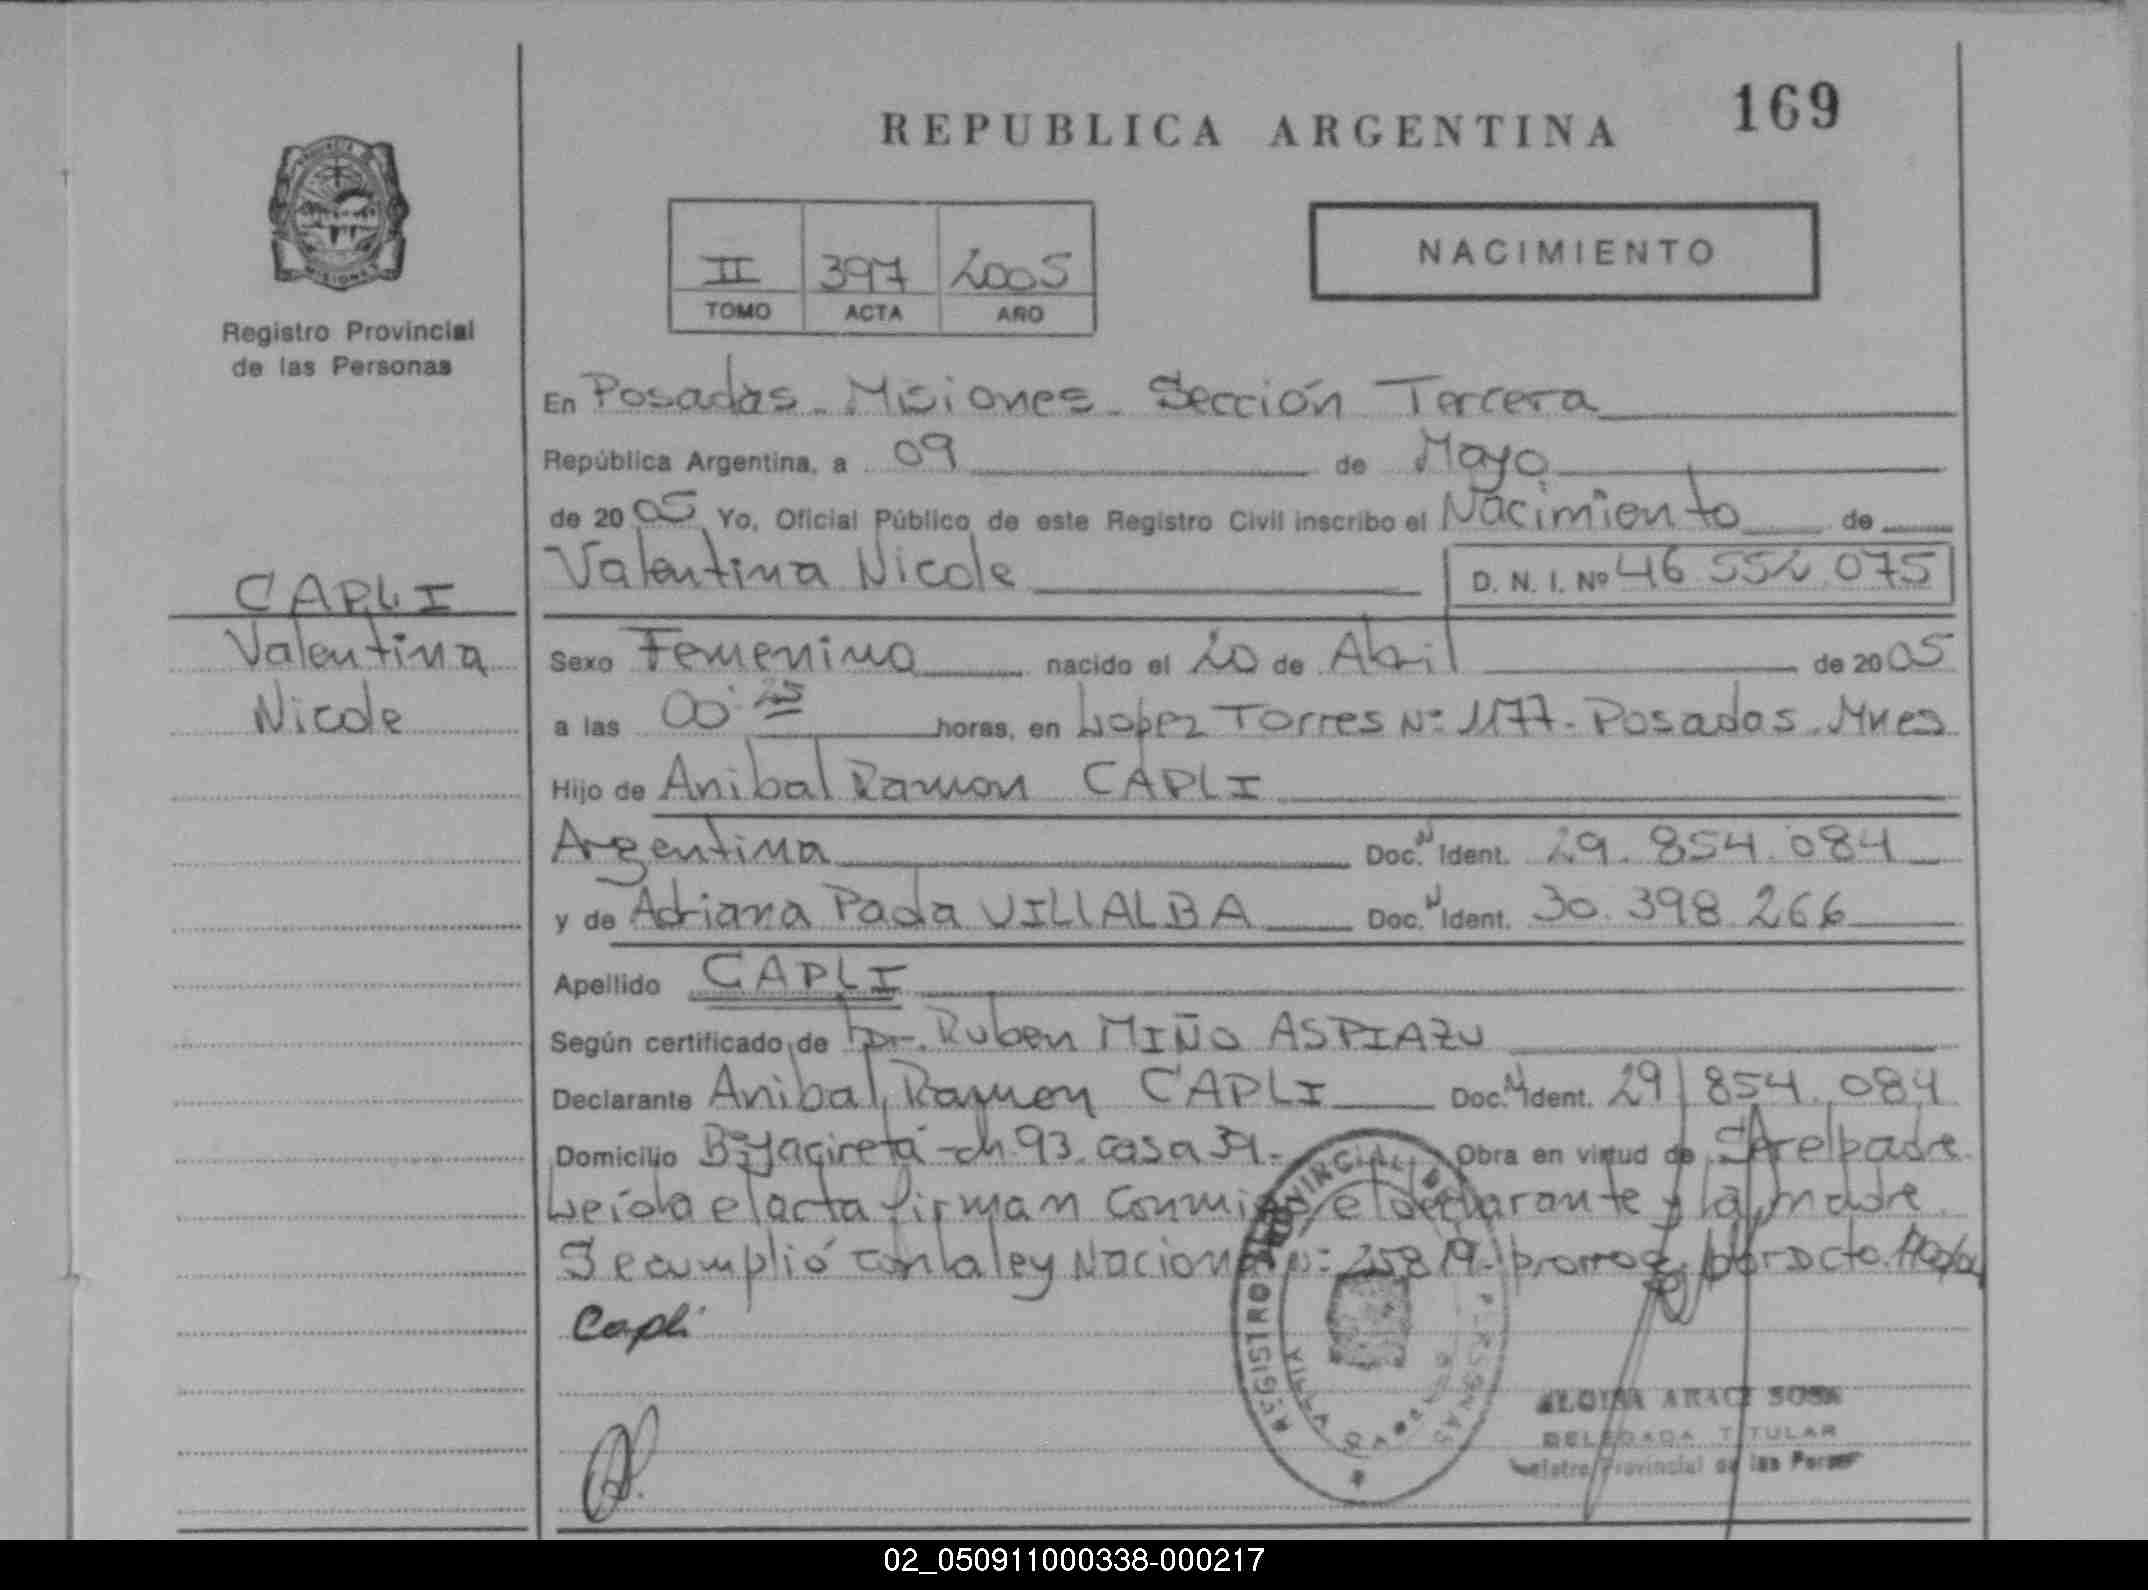 169
REPUBLICA ARGENTINA
NACIMIENTO
II 397 2005
TOMO ACTA AÑO
Registro Provincial
de las Personas
En Posadas - Misiones - Sección Tercera
República Argentina, a 09 de Mayo
de 2005 Yo, Oficial Público de este Registro Civil inscribo el Nacimiento de
Valentina Nicole D. N. I. Nº 46 552 075
CAPLI
Valentina
Nicole
Sexo Femenino nacido el 20 de Abril de 2005
a las 00:25 horas, en Lopez Torres Nº 1177 - Posadas. Mnes
Hijo de Anibal Ramon CAPLI
Argentina Doc. N Ident. 29.854.084
y de Adriana Paola VILLALBA Doc. N Ident. 30.398.266
Apellido CAPLI
Según certificado de Dr. Ruben MIÑO ASPIAZU
Declarante Anibal Ramon CAPLI Doc. N Ident. 29 854.084
Domicilio Bº Yacireta - ch 93. casa 39 - Obra en virtud de Ser el padre
Leída el acta firman conmigo el declarante y la madre
Se cumplió con la ley Nacional Nº: 25819 - prorrog. por Dcto.
Capli
REGISTRO PROVINCIAL DE PERSONAS
VILLA
ARACI SOSA
DELEGADA TITULAR
Registro Provincial de las Personas
02_050911000338-000217